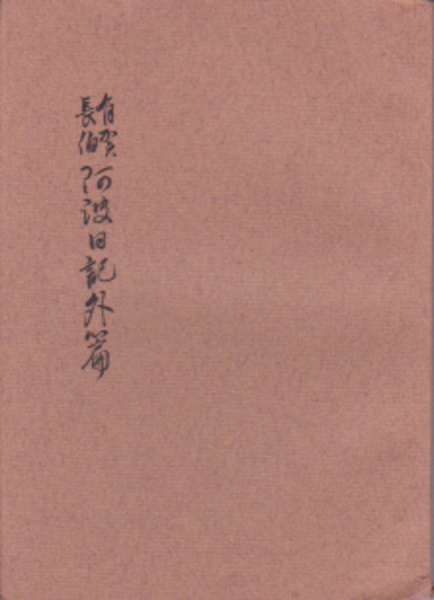 有賀長伯
阿波日記外篇